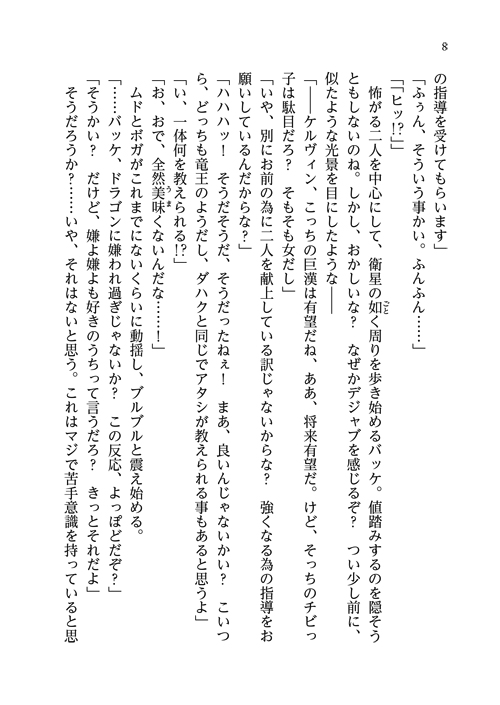 8
の指導を受けてもらいます」
「ふぅん、そういう事かい。ふんふん……」
「「ヒッ!?」」
　怖がる二人を中心にして、衛星の如く周りを歩き始めるバッケ。値踏みするのを隠そう
ともしないのね。しかし、おかしいな?　なぜかデジャブを感じるぞ?　つい少し前に、
似たような光景を目にしたような――
「――ケルヴィン、こっちの巨漢は有望だね、ああ、将来有望だ。けど、そっちのチビっ
子は駄目だろ?　そもそも女だし」
「いや、別にお前の為に二人を献上している訳じゃないからな?　強くなる為の指導をお
願いしているんだからな?」
「ハハハッ!　そうだそうだ、そうだったねぇ!　まあ、良いんじゃないかい?　こいつ
ら、どっちも竜王のようだし、ダハクと同じでアタシが教えられる事もあると思うよ」
「い、一体何を教えられる!?」
「お、おで、全然美味くないんだな……!」
　ムドとボガがこれまでにないくらいに動揺し、ブルブルと震え始める。
「……バッケ、ドラゴンに嫌われ過ぎじゃないか?　この反応、よっぽどだぞ?」
「そうかい?　だけど、嫌よ嫌よも好きのうちって言うだろ?　きっとそれだよ」
　そうだろうか?……いや、それはないと思う。これはマジで苦手意識を持っていると思